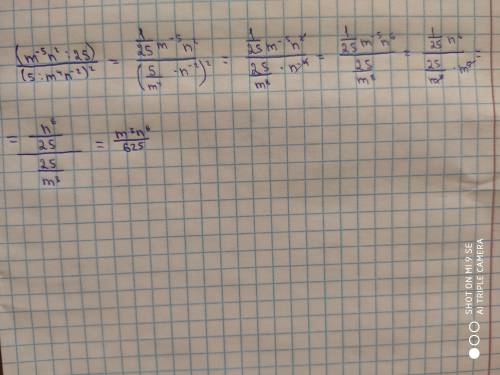 (m⁻⁵n² : 25) / (5 : m⁴n⁻²)² = 1/25 m⁻⁵n² / (5/m⁴ · n⁻²)² = 1/25 m⁻⁵n² / 25/m⁸ · n⁻⁴ = 1/25 m⁻⁵n⁶ / 25/m⁸ = 1/25 n⁶ / 25/m⁸ · m⁵ =
= n⁶/25 / 25/m³ = m³n⁶/625
SHOT ON MI 9 SE
AI TRIPLE CAMERA